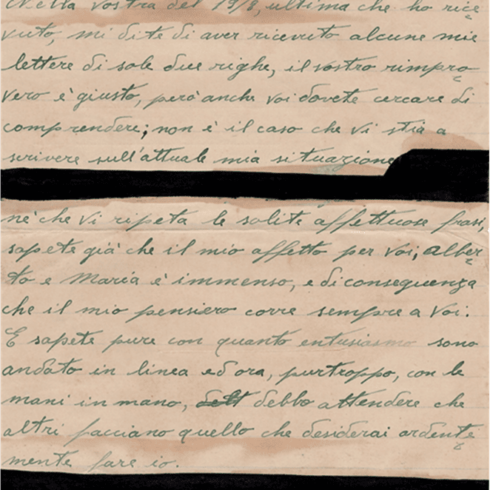 Nella vostra del 19/8, ultima che ho rice
vuto, mi dite di aver ricevuto alcune mie
lettere di sole due righe, il vostro rimpro
vero è giusto, però anche voi dovete cercare di
comprendere; non è il caso che vi stia a
scrivere sull'attuale mia situazione
nè che vi ripeta le solite affettuose frasi,
sapete già che il mio affetto per voi, Alber
to e Maria è immenso, e di conseguenza
che il mio pensiero corre sempre a voi.
E sapete pure con quanto entusiasmo sono
andato in linea ed ora, purtroppo, con le
mani in mano, debbo attendere che
altri facciano quello che desiderai ardente
mente fare io.